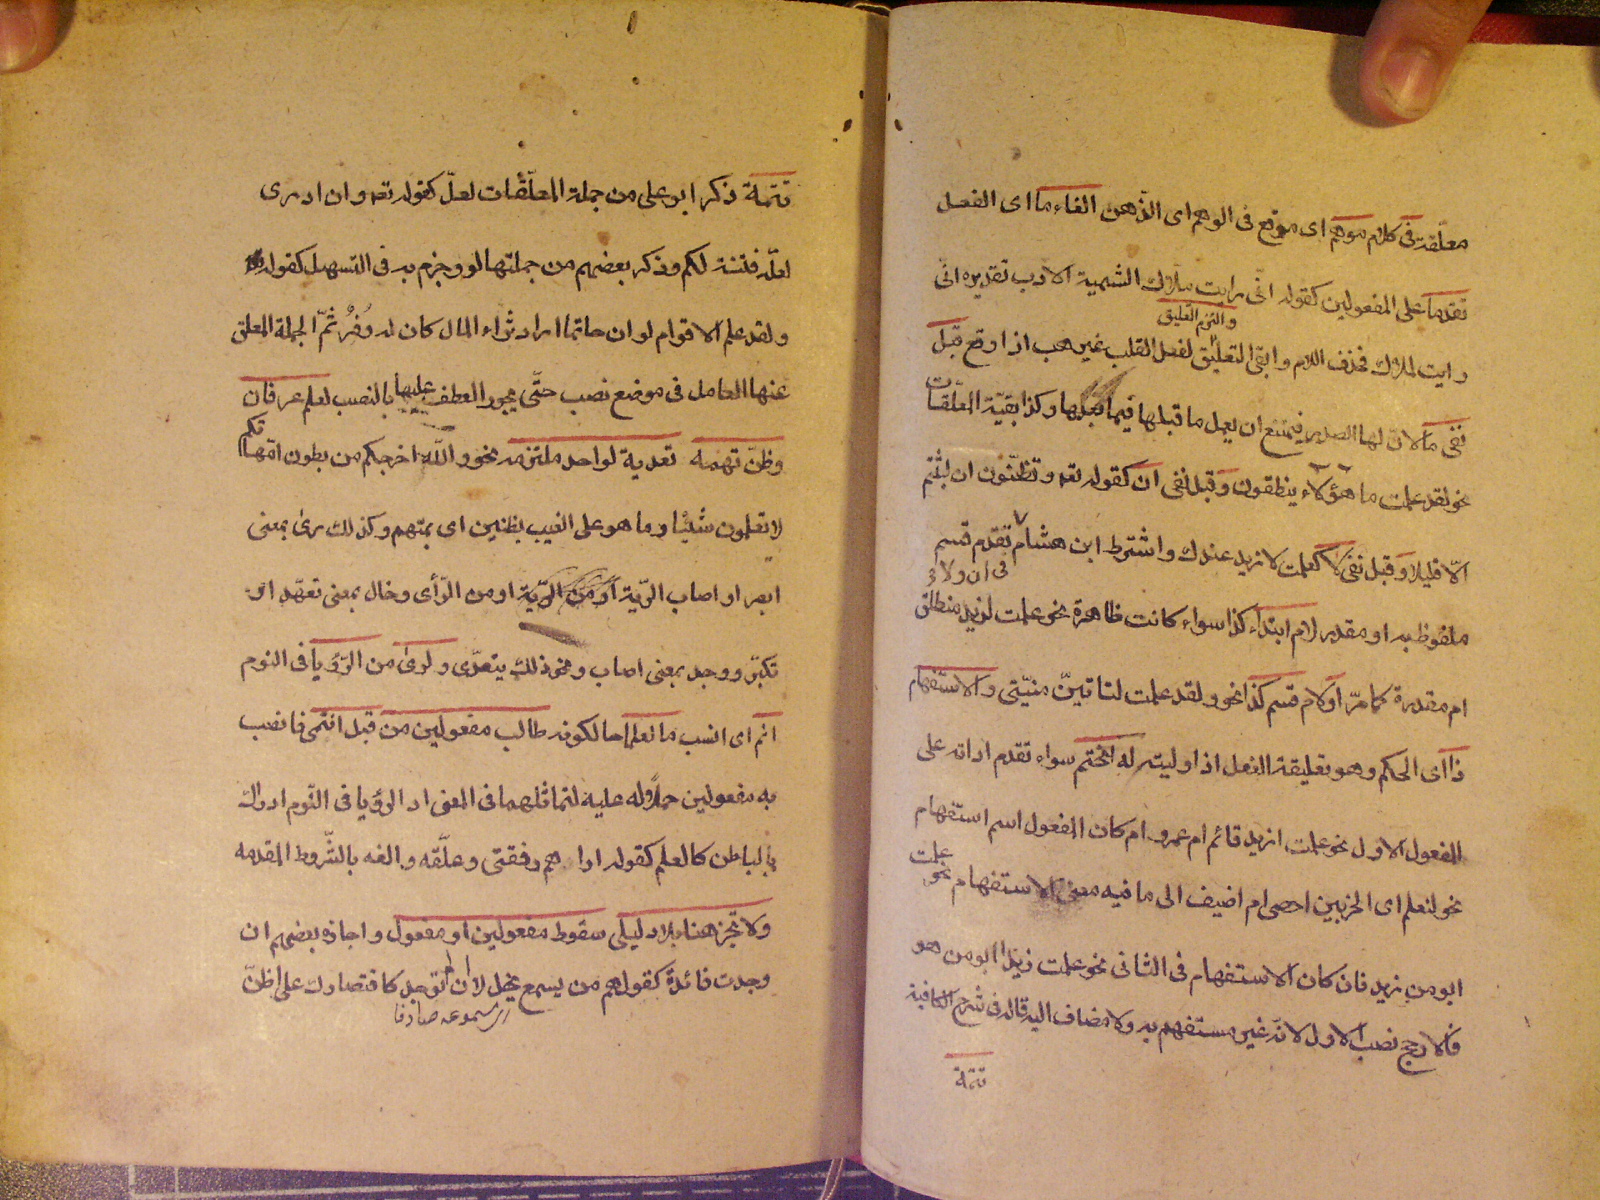 معلّقة فى كلام موهم اى موقع فى الوهم اى الذّهن الغاء ما اى الفعل
تقدما على المفعولين كقوله انّى رايت ملاك الشيمة الادب تقديره انّى
والتزم التعليق
رايت لملاك فحذف اللام وابقى التعليق لفعل القلب غير هب اذا وقع قبل
نفى ما لان لها الصدر فيمتنع ان يعمل ما قبلها فيما بعدها وكذا بقيّة المعلّقات
نحو لقد علمت ما هؤلاء ينطقون وقبل نفى ان كقوله تعه وتظنّون ان لبثتم
الّا قليلا وقبل نفى لا كعلمت لا زيد عندك واشترط ابن هشام تقدم قسم
فى ان ولا
ملفوظ به او مقدر لام ابتداء كذا سواء كانت ظاهرة نحو علمت لزيد منطلق
ام مقدرة كما مرّ او لام قسم كذا نحو ولقد علمت لتاتينّ منيّتى والاستفهام
ذا اى الحكم وهو تعليقة الفعل اذا وليته له انحتم سواء تقدم اداته على
المفعول الاول نحو علمت ازيد قائم ام عمرو ام كان المفعول اسم استفهام
نحو لنعلم اى الحزبين احصى ام اضيف الى ما فيه معنى الاستفهام نحو علمت
ابو من زيد فان كان الاستفهام فى الثانى نحو علمت زيدا ابو من هو
فالارجح نصب الاول لانّه غير مستفهم به ولا مضاف اليه قاله فى شرح الكافية
تتمة
تتمّة ذكر ابو على من جملة المعلّقات لعلّ كقوله تعه وان ادرى
لعلّه فتنة لكم وذكر بعضهم من جملتها لو وجزم به فى التسهيل كقوله
ولقد علم الاقوام لو ان حاتما اراد ثراء المال كان له وُفْرُ ثمّ الجملة المعلق
عنها العامل فى موضع نصب حتّى يجوز العطف عليها بالنصب لعلم عرفان
وظنّ تهمه تعدية لواحد ملتزمه نحو والله اخرجكم من بطون امّهاتكم
لا تعلمون شيئا وما هو على الغيب بظنين اى بمتهم وكذلك رئ بمعنى
ابصر او اصاب الرّية او من الرّأى وخال بمعنى تعهّد او
تكبّر ووجد بمعنى اصاب ونحو ذلك يتعدّى ولرئ من الرّؤيا فى النوم
انم اى انسب ما لعلما حا لكونه طالب مفعولين من قبل انتمى فانصب
به مفعولين حملًا له عليه لتماثلهما فى المعنى اذ الرؤيا فى النّوم ادراك
بالباطن كالعلم كقوله اراهم رفقتى وعلّقه والغه بالشّروط المقدمه
ولا تجز هنا بلا دليل سقوط مفعولين او مفعول واجازه بعضهم ان
وجدت فائدة كقولهم من يسمع يخل لا ان لم توجد كاقتصارك على اظنّ
اى مسموعه صادقا